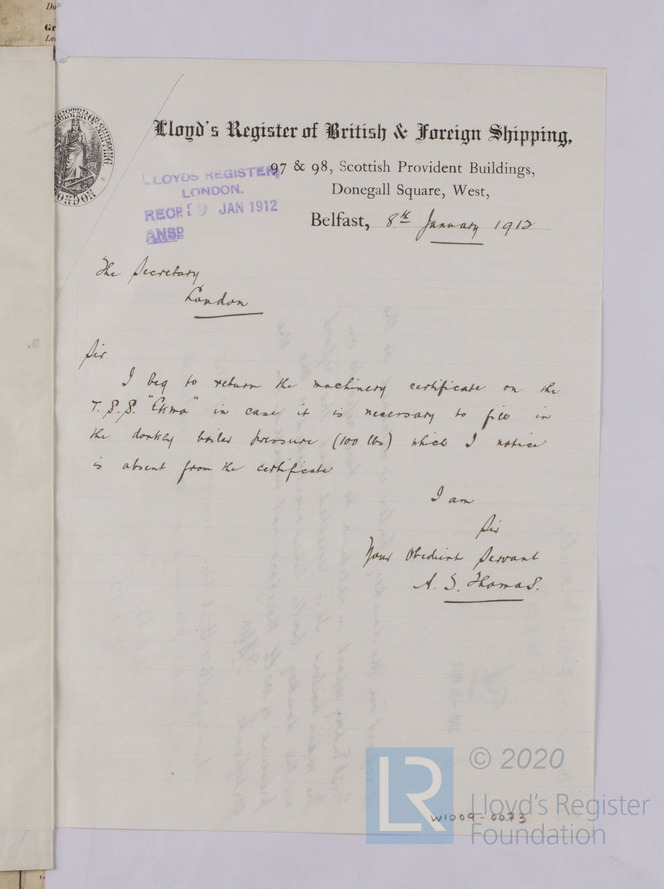 Lloyd's Register of British & Foreign Shipping,
97 & 98, Scottish Provident Buildings,
Donegall Square, West,
Belfast, 8th January 1912
LLOYDS REGISTER,
LONDON.
RECD 9 JAN 1912
ANSD
The Secretary
London
Sir
I beg to return the machinery certificate on the
T.S.S. "Ekma" in case it is necessary to fill in
the donkey boiler pressure (100 lbs) which I notice
is absent from the certificate
I am
Sir
Your Obedient Servant
A. S. Thomas.
© 2020
LR
Lloyd's Register
Foundation
W1009-0073